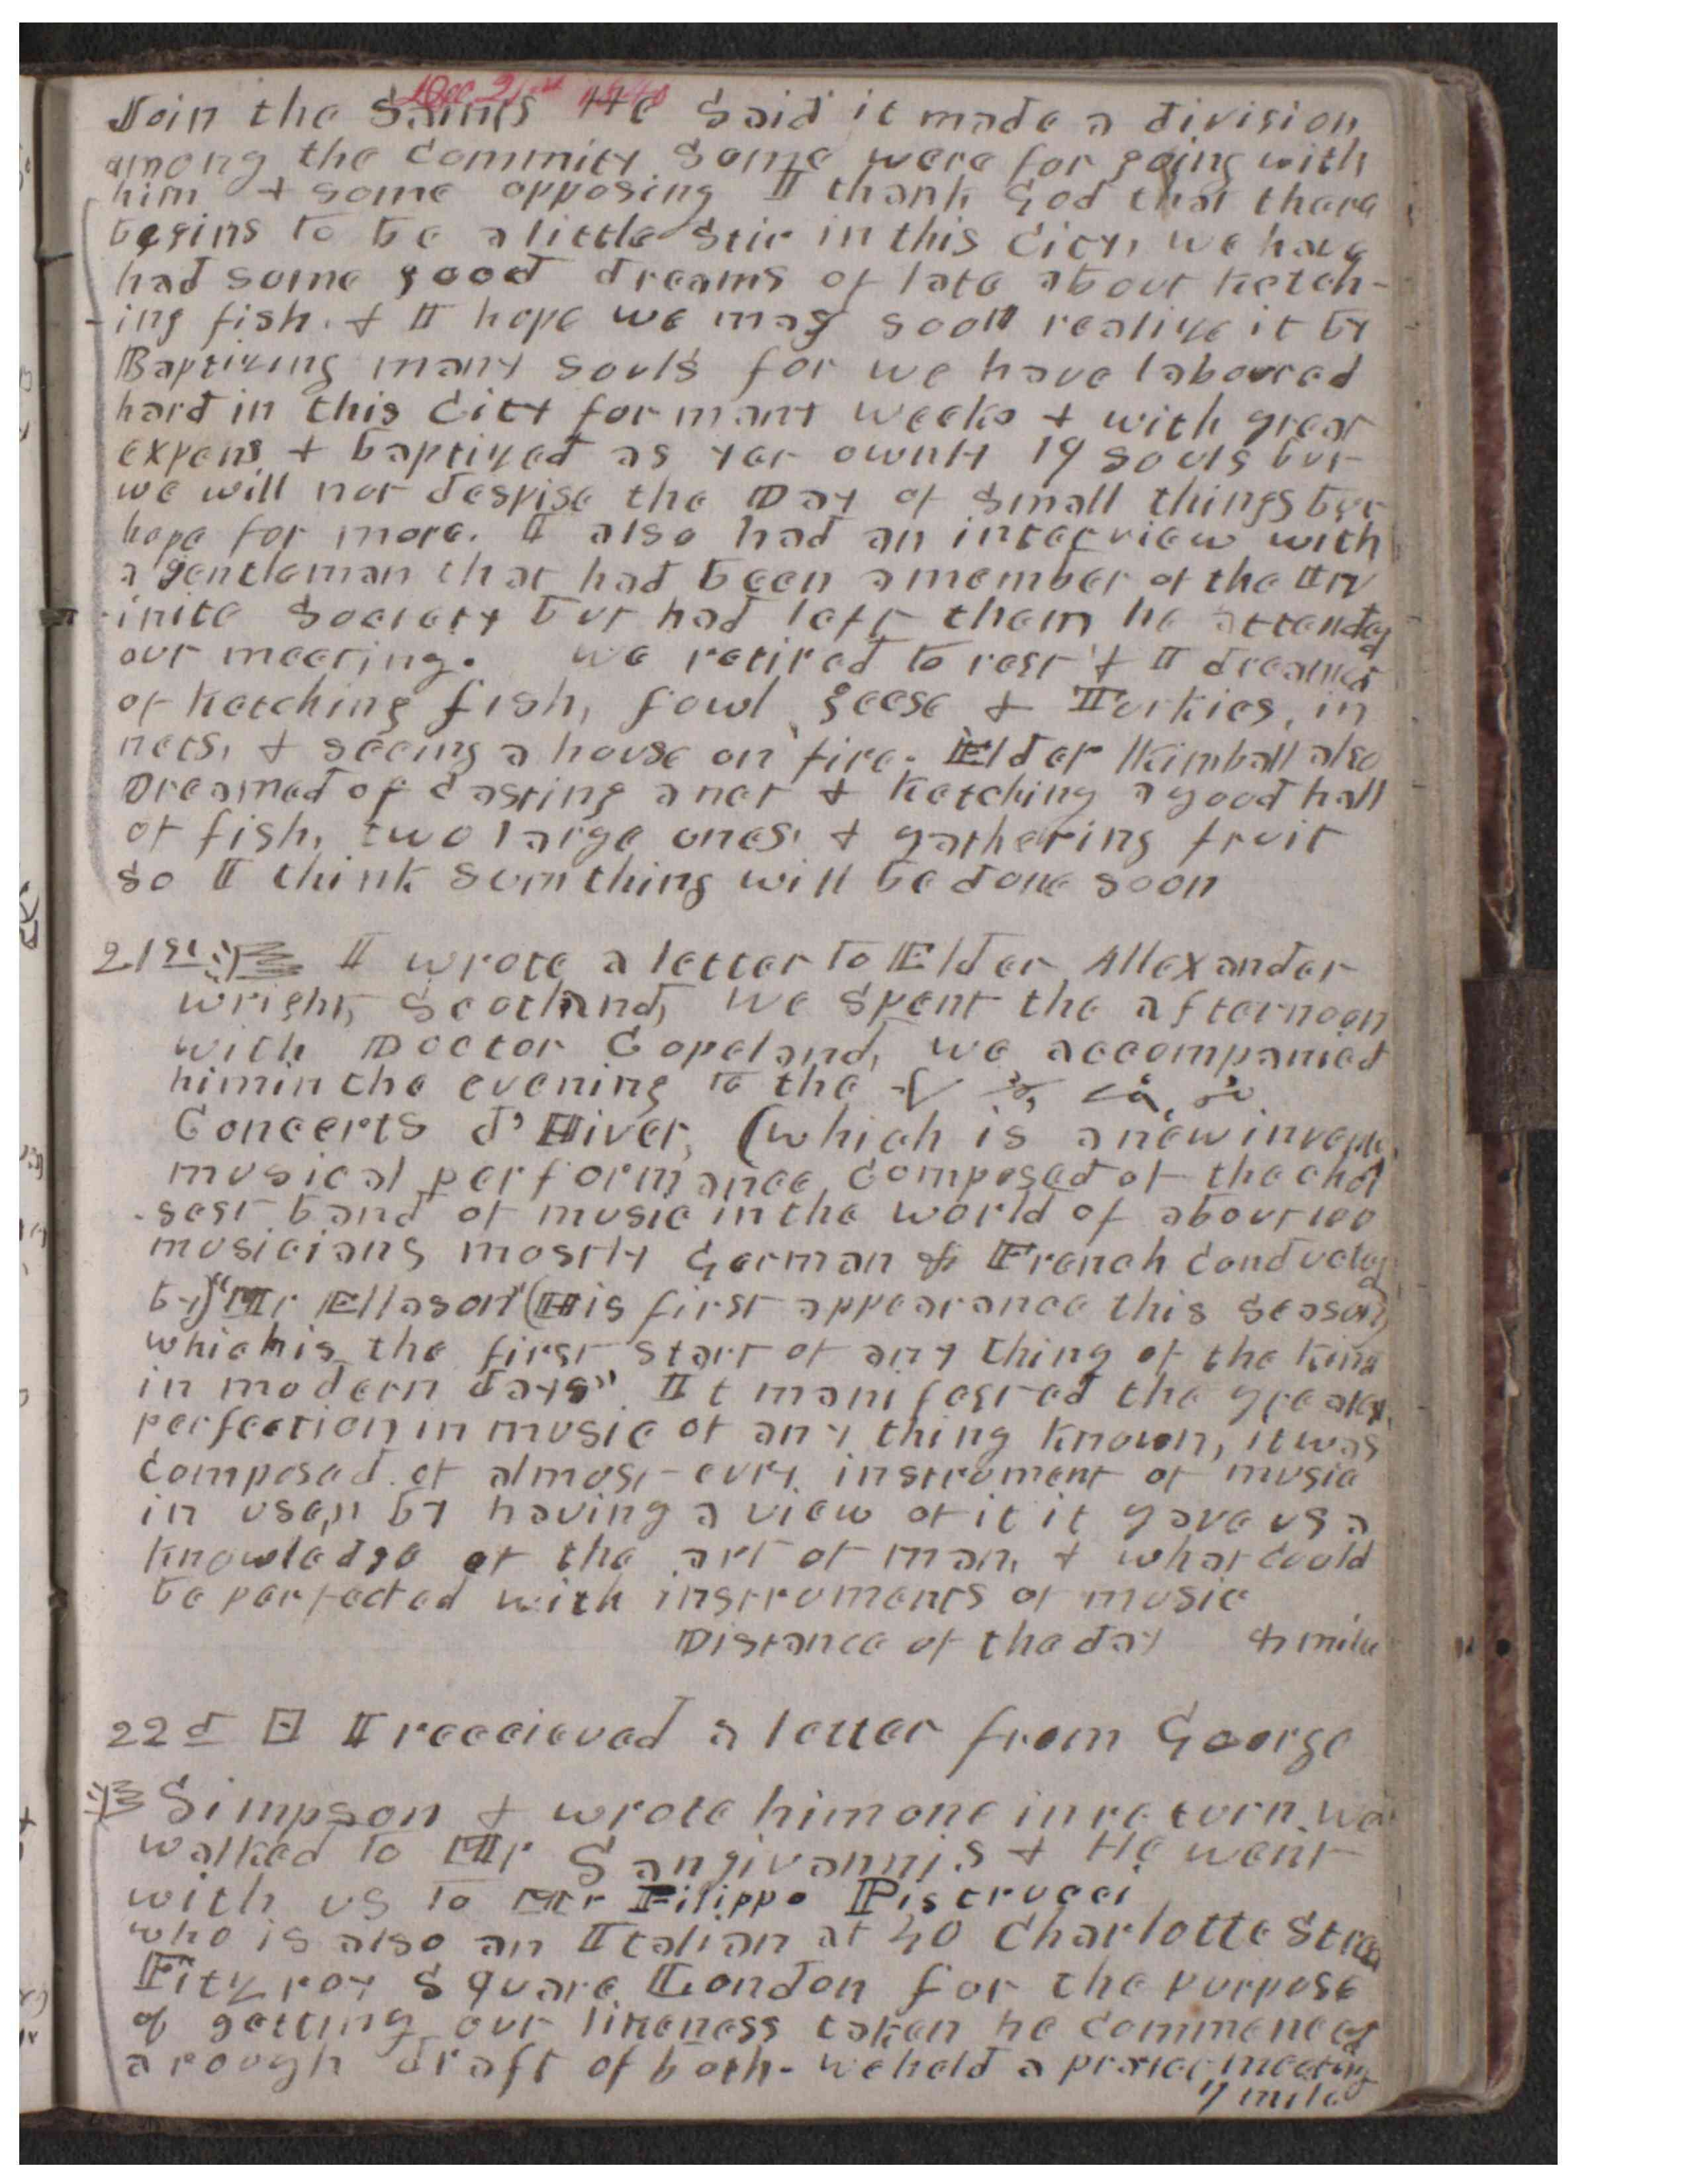 Dec 21st 1840
Join the Saints He Said it made a division
among the Commity Some were for going with
him & some opposing I thank God that there
begins to be a little Stir in this City, we have
had some good dreams of late about ketch-
-ing fish. & I hope we may soon realize it by
Baptizing many souls for we have laboured
hard in this City for many weeks & with great
expens & baptized as yet ownly 19 Souls but
we will not despise the Day of Small things but
hope for more. I also had an interview with
a gentleman that had been a member of the
-inite Society but had left them he attended
our meeting. we retired to rest & I dreamed
of ketching fish, fowl geese & Turkies, in
nets, & seeing a house on fire. Elder Kimball also
Dreamed of Casting a net & ketching a good hall
of fish, two large ones, & gathering fruit
so I think sumthing will be done soon
21st I wrote a letter to Elder Allexander
wright, Scotland, we Spent the afternoon
with Doctor Copeland, we accompanied
him in the evening to the
Concerts d'Hiver, (which is a new
musical performance, Composed of the choi
-sest band of music in the world of about 100
musicians mostly German & French Conducted
by) "Mr Ellason" (His first appearance this Season)
which is the first start of any thing of the kind
in modern days" It manifested the greatest
perfection in music of any thing known, it was
Composed of almost evry instrument of music
in use, by having a view of it it gave us a
knowledge of the art of man, & what could
be perfected with instruments of music
Distance of the day 4 mile
22d I receieved a letter from George
Simpson & wrote him one in return, we
walked to Mr Sangivannis & He went
with us to Mr Filippo Pistrucci
who is also an Italian at 40 Charlotte Street
Fitzroy Square London for the purpose
of getting our likeness taken he commenced
a rough draft of both- we held a prayer meeting
7 mile